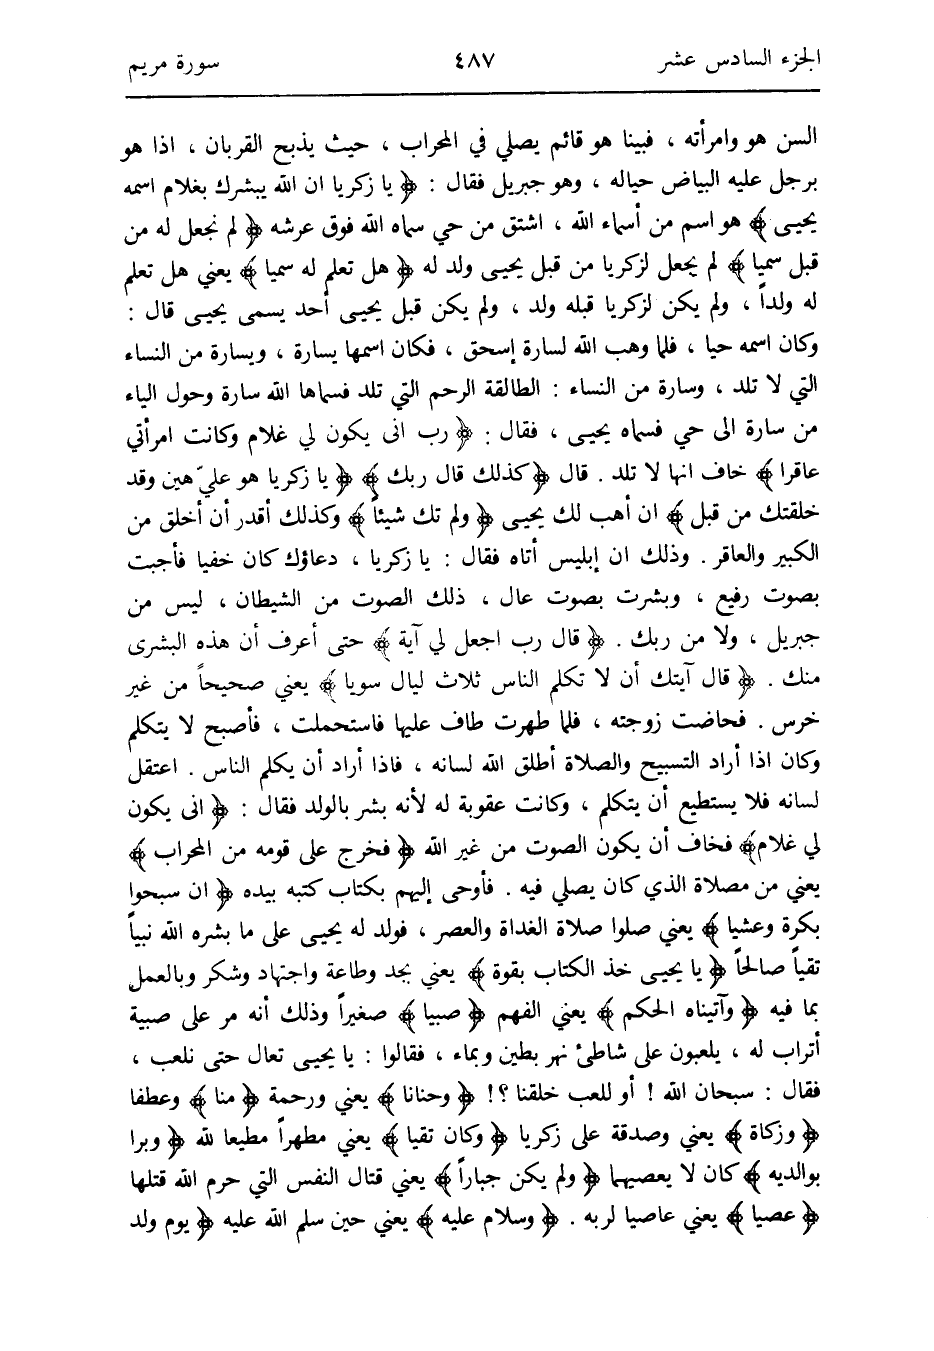 الجزء السادس عشر ٤٨٧ سورة مريم
السن هو وامرأته ، فبينا هو قائم يصلي في المحراب ، حيث يذبح القربان ، اذا هو
برجل عليه البياض حياله ، وهو جبريل فقال : ﴿ يا زكريا ان الله يبشرك بغلام اسمه
يحيى ﴾ هو اسم من أسماء الله ، اشتق من حي سماه الله فوق عرشه ﴿ لم نجعل له من
قبل سميا ﴾ لم يجعل لزكريا من قبل يحيى ولد له ﴿ هل تعلم له سميا ﴾ يعني هل تعلم
له ولداً ، ولم يكن لزكريا قبله ولد ، ولم يكن قبل يحيى أحد يسمى يحيى قال :
وكان اسمه حيا ، فلما وهب الله لسارة إسحق ، فكان اسمها يسارة ، ويسارة من النساء
التي لا تلد ، وسارة من النساء : الطالقة الرحم التي تلد فسماها الله سارة وحول الياء
من سارة الى حي فسماه يحيى ، فقال : ﴿ رب انى يكون لي غلام وكانت امرأتي
عاقرا ﴾ خاف انها لا تلد . قال ﴿ كذلك قال ربك ﴾ ﴿ يا زكريا هو عليّ هين وقد
خلقتك من قبل ﴾ ان أهب لك يحيى ﴿ ولم تك شيئاً ﴾ وكذلك أقدر أن أخلق من
الكبير والعاقر . وذلك ان إبليس أتاه فقال : يا زكريا ، دعاؤك كان خفيا فأجبت
بصوت رفيع ، وبشرت بصوت عال ، ذلك الصوت من الشيطان ، ليس من
جبريل ، ولا من ربك . ﴿ قال رب اجعل لي آية ﴾ حتى أعرف أن هذه البشرى
منك . ﴿ قال آيتك أن لا تكلم الناس ثلاث ليال سويا ﴾ يعني صحيحاً من غير
خرس . فحاضت زوجته ، فلما طهرت طاف عليها فاستحملت ، فأصبح لا يتكلم
وكان اذا أراد التسبيح والصلاة أطلق الله لسانه ، فاذا أراد أن يكلم الناس . اعتقل
لسانه فلا يستطيع أن يتكلم ، وكانت عقوبة له لأنه بشر بالولد فقال : ﴿ انى يكون
لي غلام﴾ فخاف أن يكون الصوت من غير الله ﴿ فخرج على قومه من المحراب ﴾
يعني من مصلاة الذي كان يصلي فيه . فأوحى إليهم بكتاب كتبه بيده ﴿ ان سبحوا
بكرة وعشيا ﴾ يعني صلوا صلاة الغداة والعصر ، فولد له يحيى على ما بشره الله نبياً
تقياً صالحاً ﴿ يا يحيى خذ الكتاب بقوة ﴾ يعني بجد وطاعة واجتهاد وشكر وبالعمل
بما فيه ﴿ وآتيناه الحكم ﴾ يعني الفهم ﴿ صبيا ﴾ صغيراً وذلك أنه مر على صبية
أتراب له ، يلعبون على شاطئ نهر بطين وبماء ، فقالوا : يا يحيى تعال حتى نلعب ،
فقال : سبحان الله ! أو للعب خلقنا ؟! ﴿ وحنانا ﴾ يعني ورحمة ﴿ منا ﴾ وعطفا
﴿ وزكاة ﴾ يعني وصدقة على زكريا ﴿ وكان تقيا ﴾ يعني مطهراً مطيعا لله ﴿ وبرا
بوالديه ﴾ كان لا يعصيهما ﴿ ولم يكن جباراً ﴾ يعني قتال النفس التي حرم الله قتلها
﴿ عصيا ﴾ يعني عاصيا لربه . ﴿ وسلام عليه ﴾ يعني حين سلم الله عليه ﴿ يوم ولد